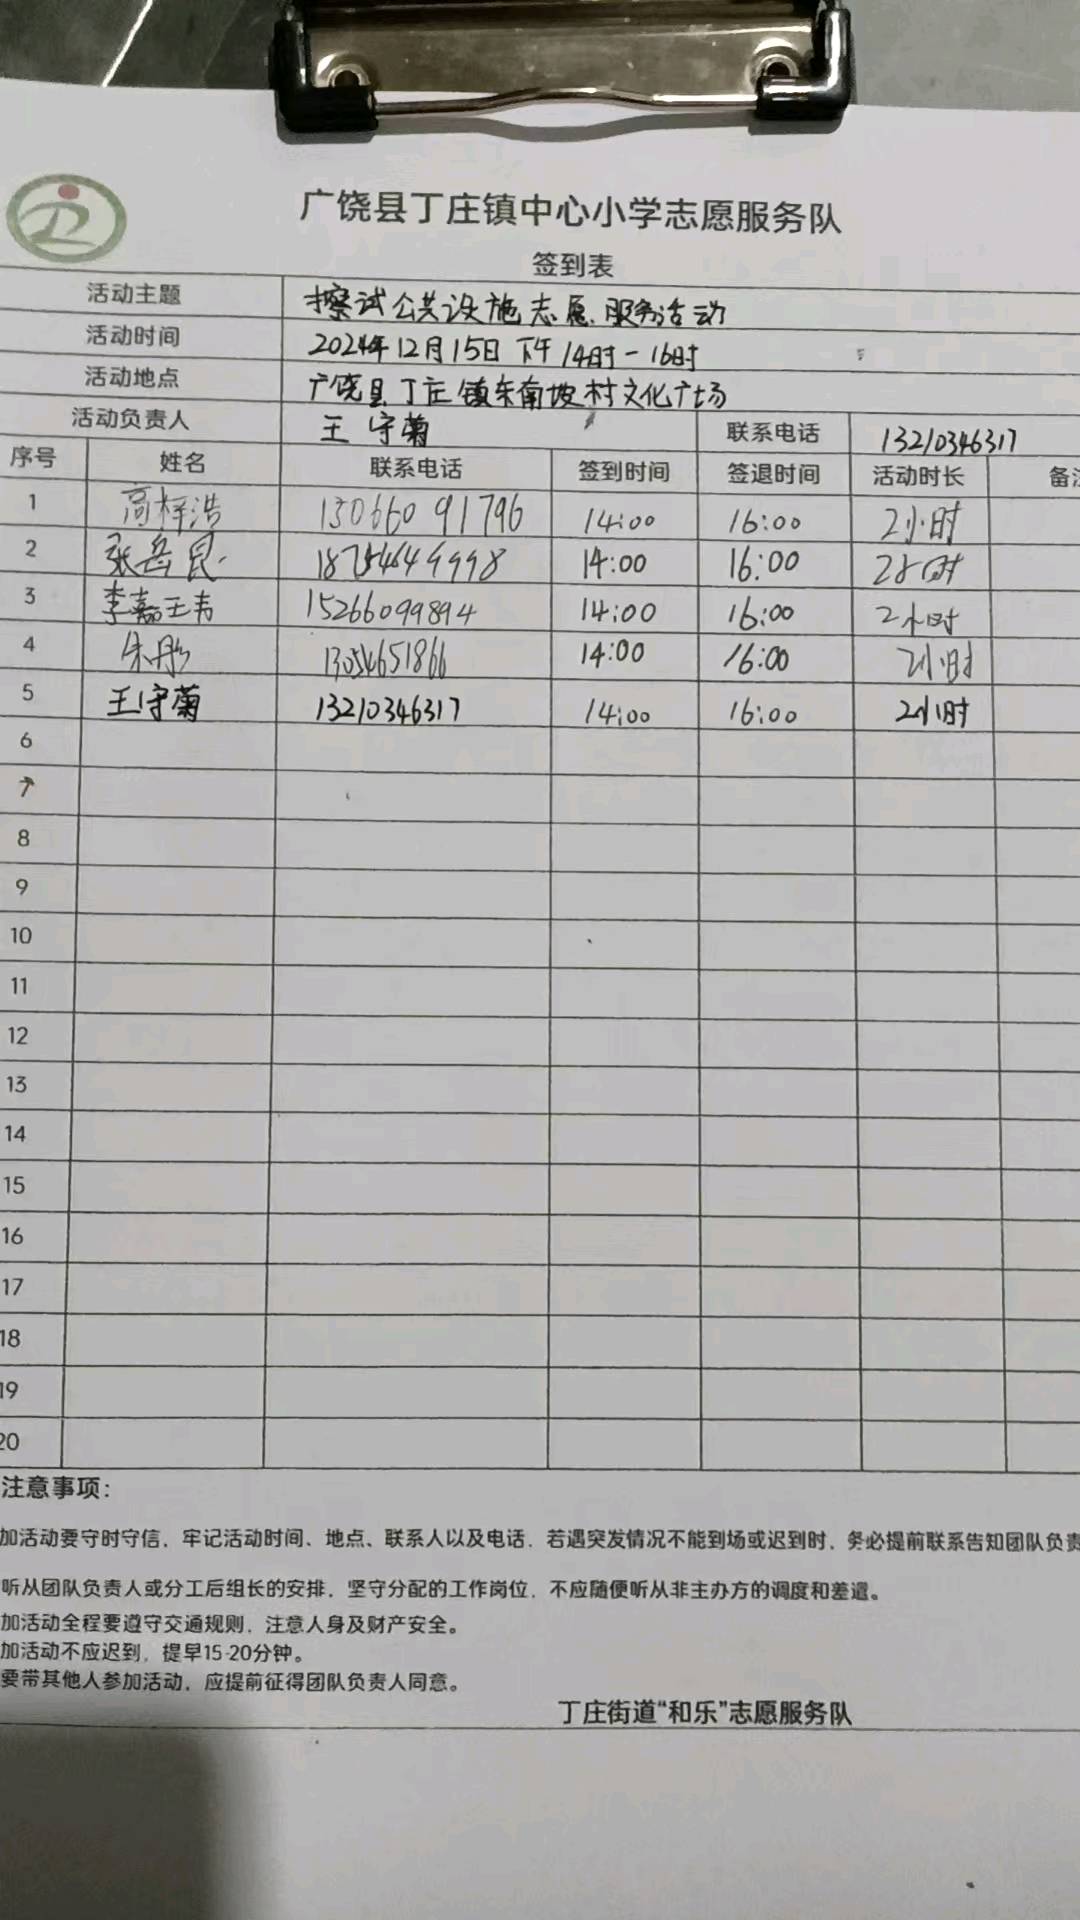 广饶县丁庄镇中心小学志愿服务队
签到表
活动主题 擦试公共设施志愿服务活动
活动时间 2024年12月15日下午14时-16时
活动地点 广饶县丁庄镇东南坡村文化广场
活动负责人 王守菊 联系电话 13210346317
序号 姓名 联系电话 签到时间 签退时间 活动时长 备注
1 高梓浩 13066091796 14:00 16:00 2小时
2 张岳昆 14:00 16:00 2小时
3 李嘉玮 15266099894 14:00 16:00 2小时
4 朱彤 13054651866 14:00 16:00 2小时
5 王守菊 13210346317 14:00 16:00 2小时
6
7
8
9
10
11
12
13
14
15
16
17
18
19
20
注意事项：
加活动要守时守信，牢记活动时间、地点、联系人以及电话，若遇突发情况不能到场或迟到时，务必提前联系告知团队负责
听从团队负责人或分工后组长的安排，坚守分配的工作岗位，不应随便听从非主办方的调度和差遣。
加活动全程要遵守交通规则，注意人身及财产安全。
加活动不应迟到，提早15-20分钟。
要带其他人参加活动，应提前征得团队负责人同意。
丁庄街道“和乐”志愿服务队